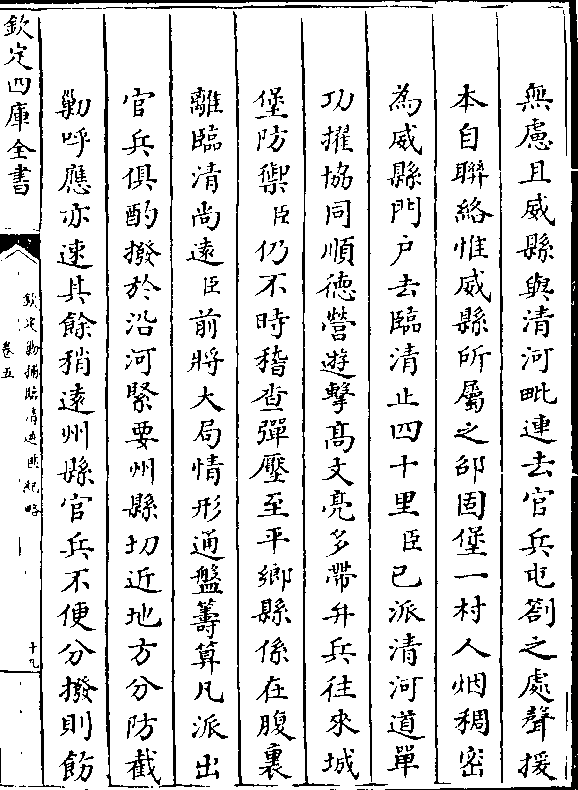 無慮且威縣與清河毗連去官兵屯劄之處聲援
本自聯絡惟威縣所屬之邵固堡一村人烟稠密
為威縣門户去臨清止四十里臣已派清河道單
功擢協同順徳營遊擊髙文亮多帶弁兵往來城
堡防禦臣仍不時稽查彈壓至平鄉縣係在腹裏
離臨清尚遠臣前將大局情形通盤籌算凡派出
官兵俱酌撥於沿河緊要州縣切近地方分防截
勦呼應亦速其餘稍遠州縣官兵不便分撥則飭
欽定四庫全書
欽定勦捕臨清逆匪紀略
卷五
十九